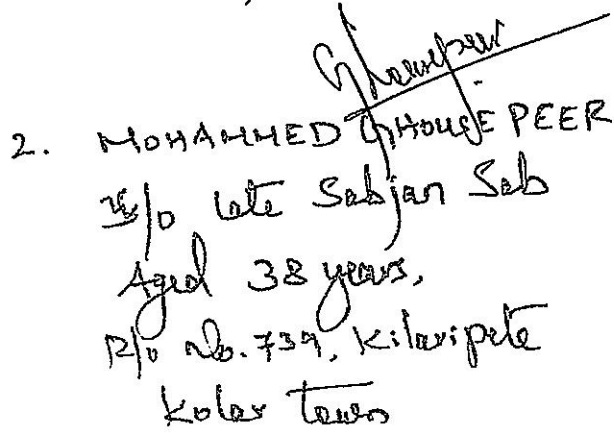 Ghousepeer
2. MOHAMMED GHOUSE PEER
S/o late Sabjan Sab
Aged 38 years,
R/o No. 739, Kilaripete
Kolar Town